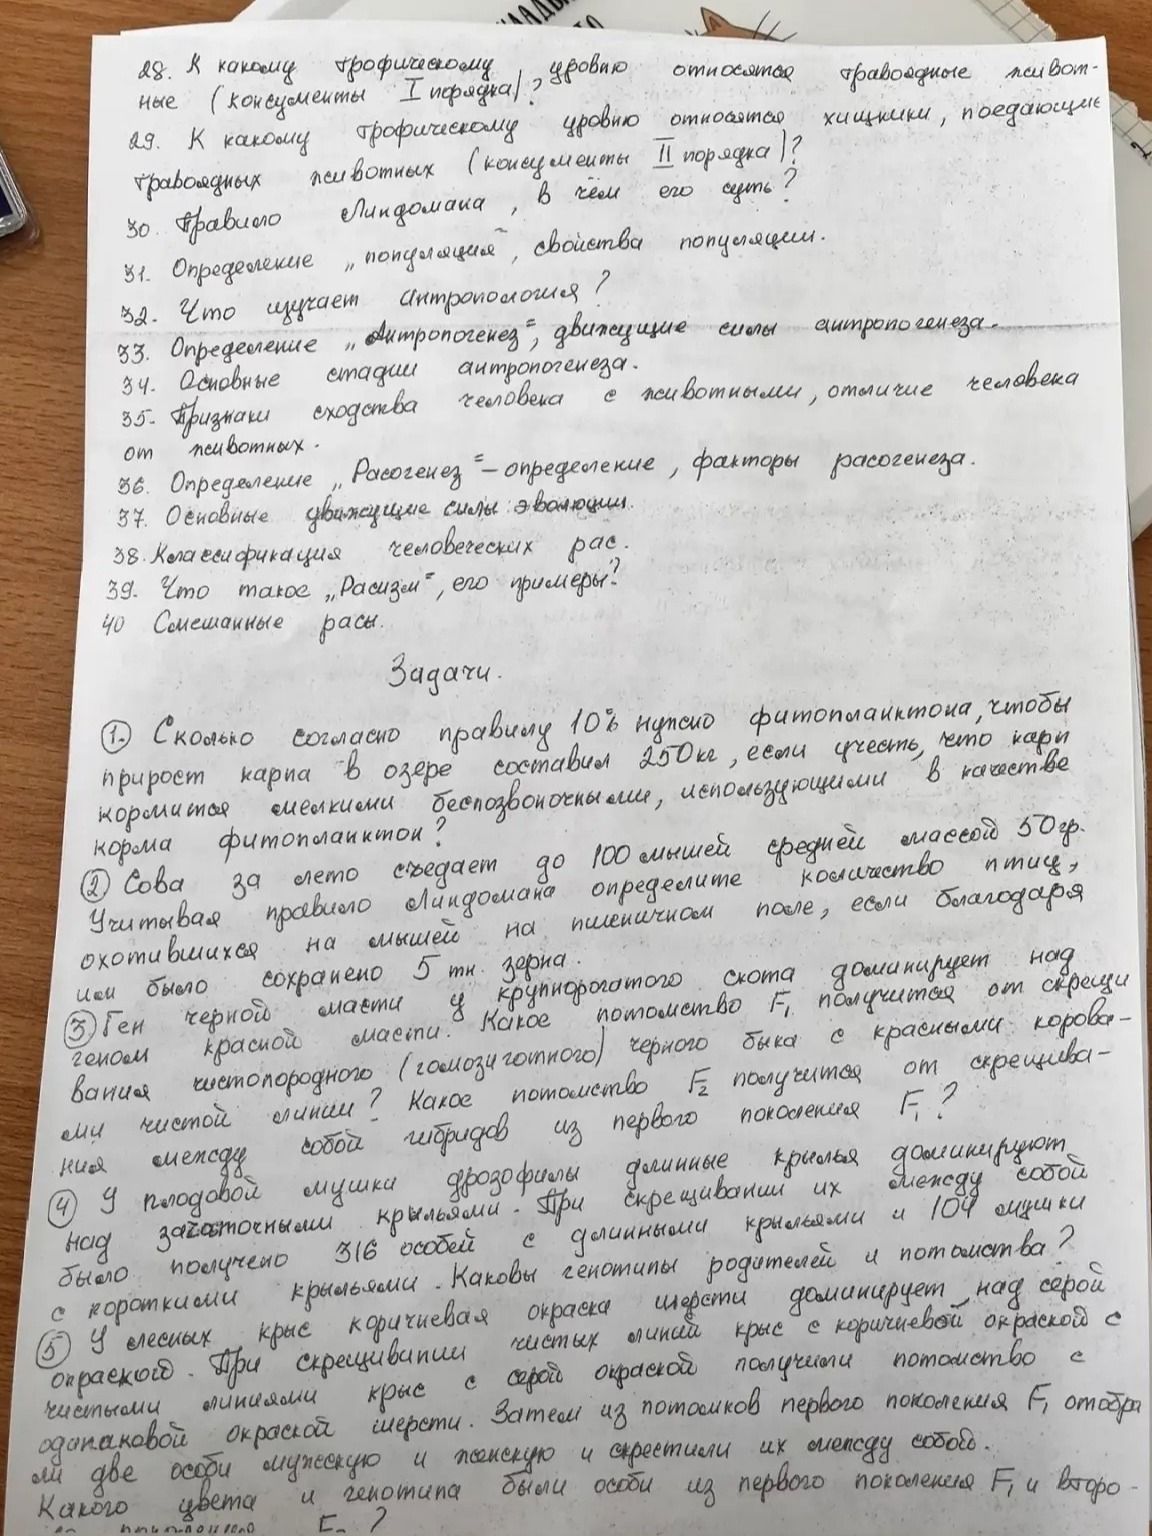 28. К какому трофическому уровню относятся травоядные живот-
ные (консументы I порядка)?
29. К какому трофическому уровню относятся хищники, поедающие
травоядных животных (консументы II порядка)?
30. Правило Линдомана, в чём его суть?
31. Определение „популяция", свойства популяции.
32. Что изучает антропология?
33. Определение „Антропогенез", движущие силы антропогенеза.
34. Основные стадии антропогенеза.
35. Признаки сходства человека с животными, отличие человека
от животных.
36. Определение „Расогенез" – определение, факторы расогенеза.
37. Основные движущие силы эволюции.
38. Классификация человеческих рас.
39. Что такое „Расизм", его примеры?
40 Смешанные расы.
Задачи.
1. Сколько согласно правилу 10% нужно фитопланктона, чтобы
прирост карпа в озере составил 250кг, если учесть, что карп
кормится мелкими беспозвоночными, использующими в качестве
корма фитопланктон?
2 Сова за лето съедает до 100 мышей средней массой 50гр.
Учитывая правило Линдомана определите количество птиц,
охотившихся на мышей на пшеничном поле, если благодаря
им было сохранено 5 тн. зерна.
3 Ген черной масти у крупнорогатого скота доминирует над
геном красной масти. Какое потомство F1 получится от скрещи
вания чистопородного (гомозиготного) черного быка с красными корова-
ми чистой линии? Какое потомство F2 получится от скрещива-
ния между собой гибридов из первого поколения F1?
4 У плодовой мушки дрозофилы длинные крылья доминируют
над зачаточными крыльями. При скрещивании их между собой
было получено 316 особей с длинными крыльями и 104 мушки
с короткими крыльями. Каковы генотипы родителей и потомства?
5 У лесных крыс коричневая окраска шерсти доминирует над серой
окраской. При скрещивании чистых линий крыс с коричневой окраской с
чистыми линиями крыс с серой окраской получили потомство с
одинаковой окраской шерсти. Затем из потомков первого поколения F1 отобра
ли две особи мужскую и женскую и скрестили их между собой.
Какого цвета и генотипа были особи из первого поколения F1 и второ-
?